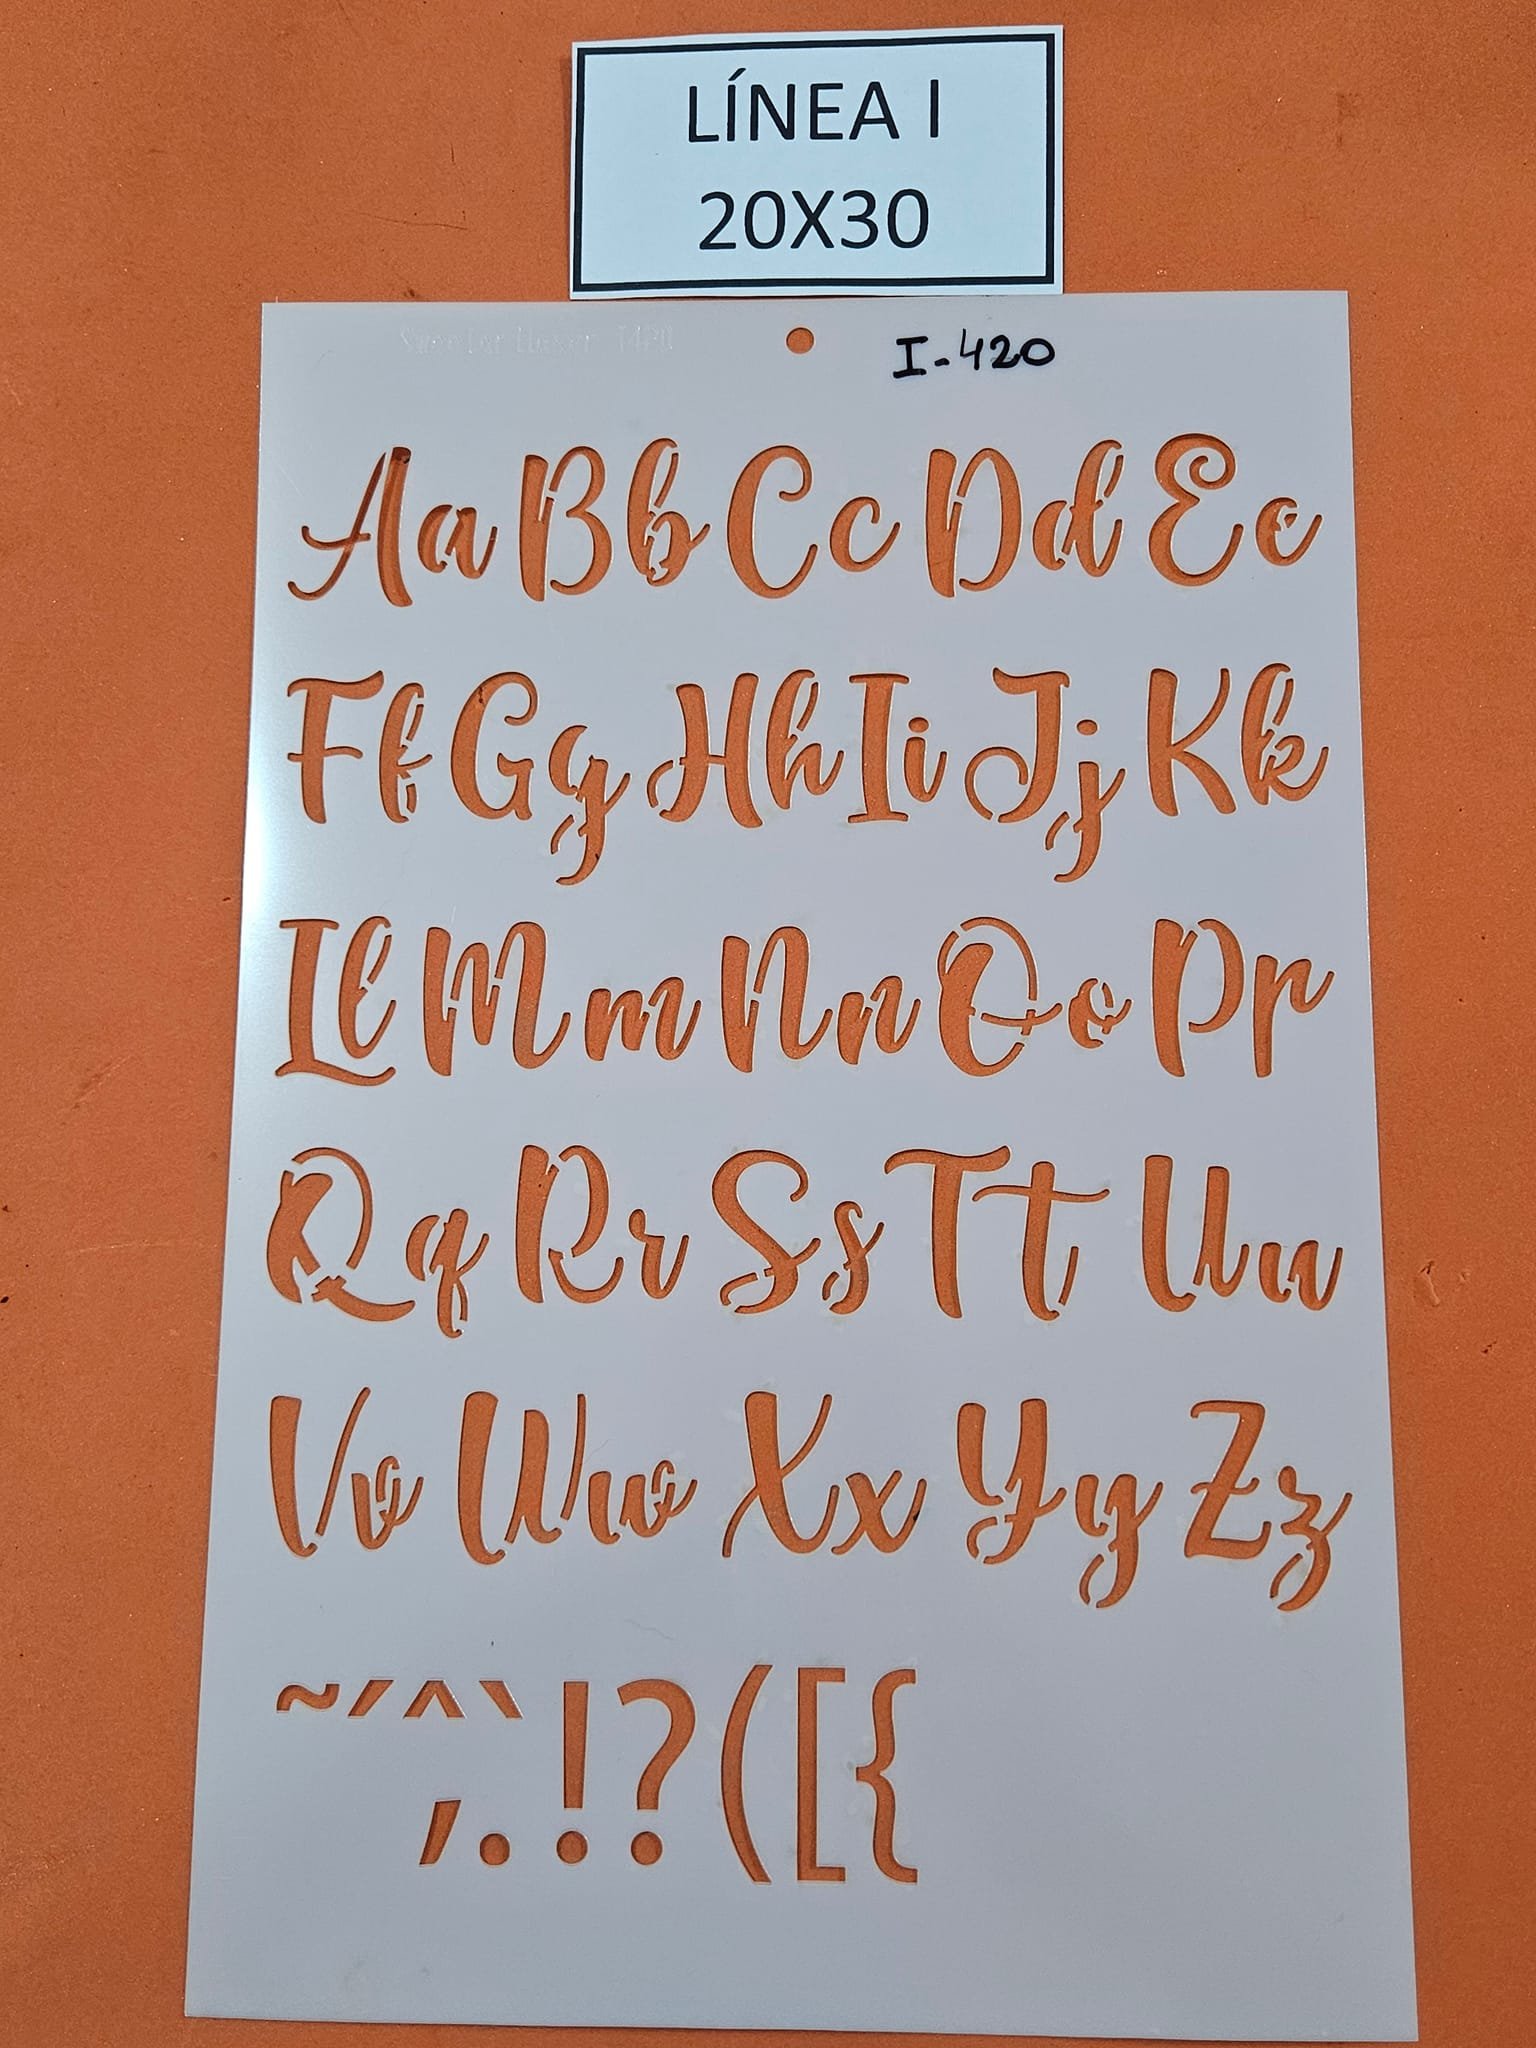 LÍNEA I
20X30
I-420
Aa Bb Cc Dd Ee
Ff Gg Hh Ii Jj Kk
Ll Mm Nn Oo Pp
Qq Rr Ss Tt Uu
Vv Ww Xx Yy Zz
~´^`,.!?([{